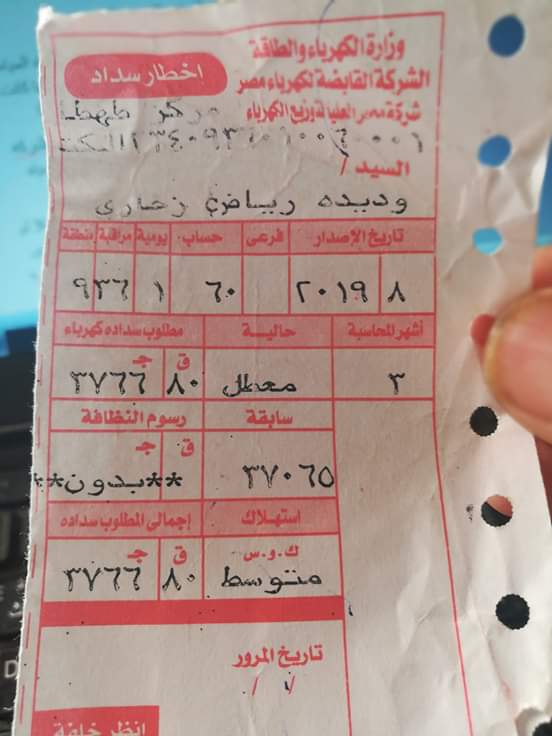 وزارة الكهرباء والطاقة
الشركة القابضة لكهرباء مصر
اخطار سداد
شركة مصر العليا لتوزيع الكهرباء
مركز طهطا
السيد /
وديده رياض زخاري
تاريخ الإصدار فرعى حساب يومية مراقبة منطقة
٨ ٢٠١٩ ٦٠ ١ ٩٣٦
أشهر المحاسبة حاليـة مطلوب سداده كهرباء
ق جـ
٣ معطل ٨٠ ٣٧٦٦
سابقة رسوم النظافة
ق جـ
٣٧٠٦٥ **بدون**
استهـلاك إجمالى المطلوب سداده
ك.و.س ق جـ
متوسط ٨٠ ٣٧٦٦
تاريخ المرور
/ /
انظر خلفه